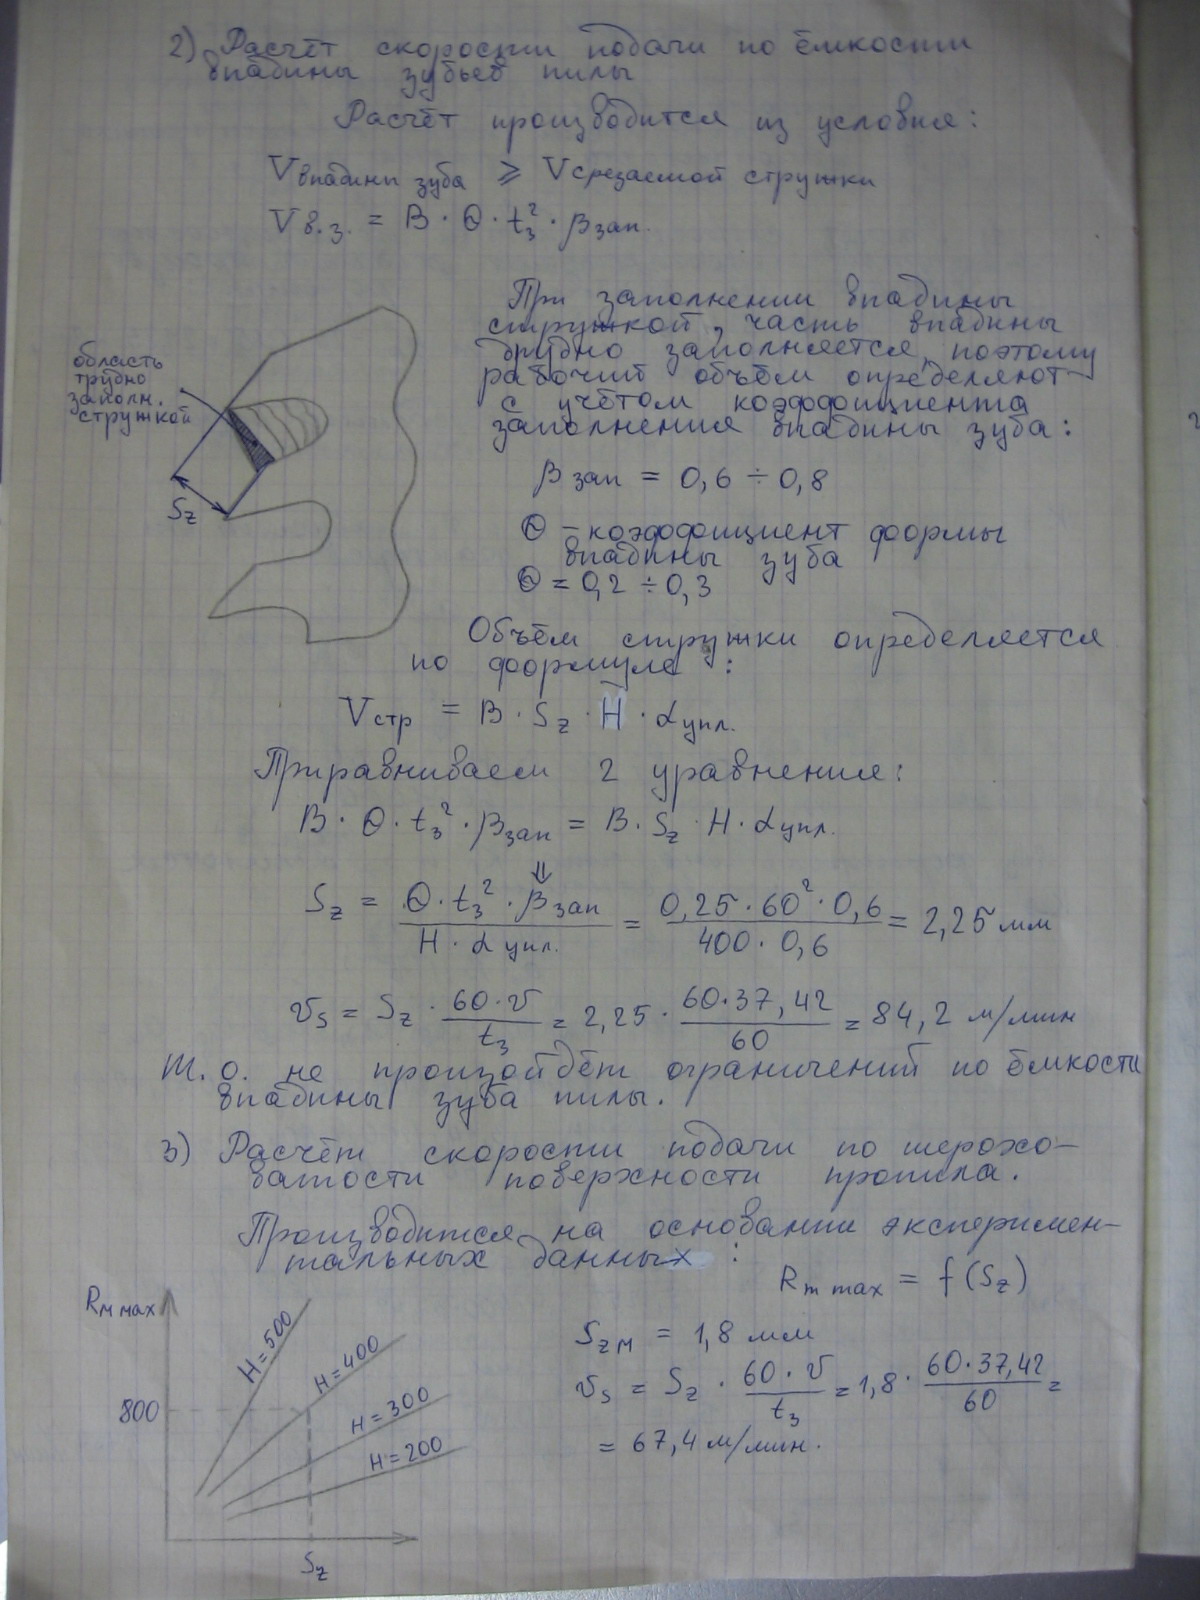 2) Расчёт скорости подачи по ёмкости
впадины зубьев пилы
Расчёт производится из условия:
Vвпадины зуба ⩾ Vсрезаемой стружки
Vв.з. = B · Θ · t₃² · βзап.
При заполнении впадины
стружкой, часть впадины
трудно заполняется, поэтому
рабочий объём определяют
с учётом коэффициента
заполнения впадины зуба:
область
трудно
заполн.
стружкой
Sz
βзап = 0,6 ÷ 0,8
Θ – коэффициент формы
впадины зуба
Θ = 0,2 ÷ 0,3
Объём стружки определяется
по формуле :
Vстр = B · Sz · H · αупл.
Приравниваем 2 уравнения:
B · Θ · t₃² · βзап = B · Sz · H · αупл.
⇓
Sz = Θ · t₃² · βзап / H · αупл. = 0,25 · 60² · 0,6 / 400 · 0,6 = 2,25 мм
vs = Sz · 60 · v / t₃ = 2,25 · 60 · 37,42 / 60 = 84,2 м/мин
Т. о. не произойдёт ограничений по ёмкости
впадины зуба пилы.
3) Расчёт скорости подачи по шерохо-
ватости поверхности пропила.
Производится на основании эксперимен-
тальных данных :
Rm max = f (Sz)
Rм мах
H=500
H=400
H=300
H=200
800
Sz
Szм = 1,8 мм
vs = Sz · 60 · v / t₃ = 1,8 · 60 · 37,42 / 60 =
= 67,4 м/мин.